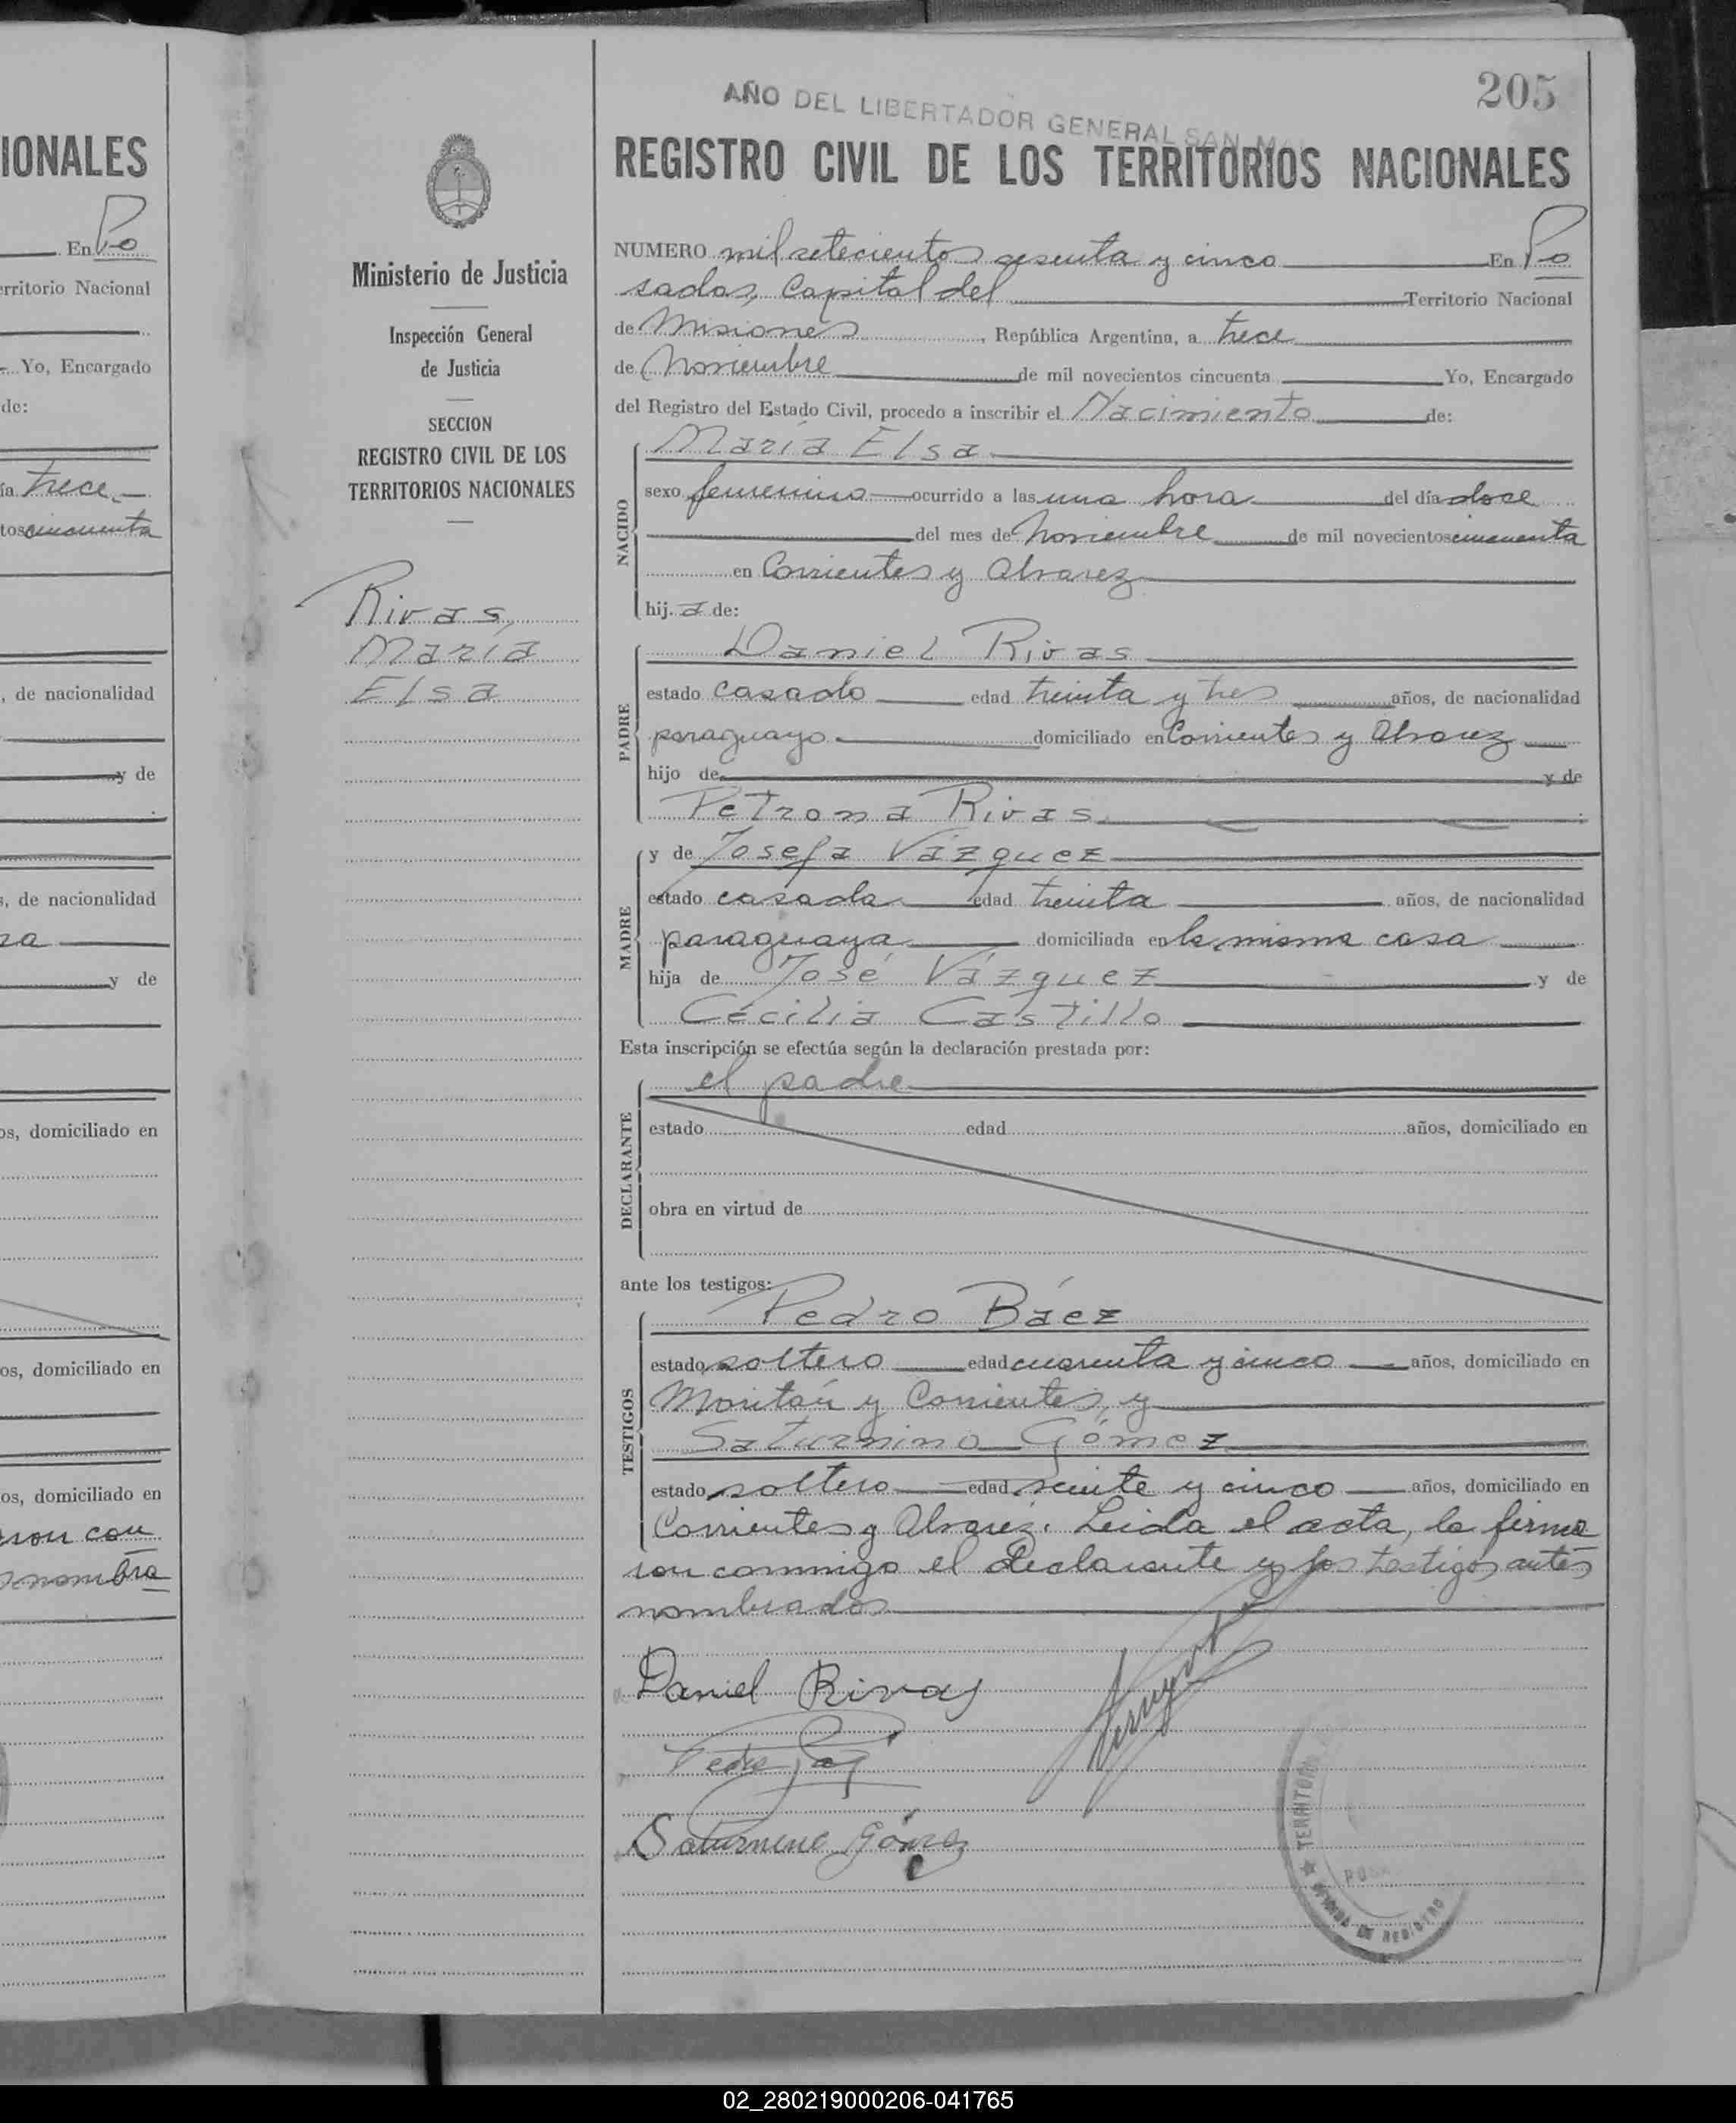 IONALES
En Po
erritorio Nacional
Yo, Encargado
de:
ía trece
tos cincuenta
, de nacionalidad
y de
s, de nacionalidad
y de
os, domiciliado en
os, domiciliado en
os, domiciliado en
ron con
nombra
Ministerio de Justicia
Inspección General
de Justicia
SECCION
REGISTRO CIVIL DE LOS
TERRITORIOS NACIONALES
Rivas,
María
Elsa
205
AÑO DEL LIBERTADOR GENERAL SAN
REGISTRO CIVIL DE LOS TERRITORIOS NACIONALES
NUMERO mil setecientos sesenta y cinco En Po
sadas, Capital del Territorio Nacional
de Misiones, República Argentina, a trece
de Noviembre de mil novecientos cincuenta Yo, Encargado
del Registro del Estado Civil, procedo a inscribir el Nacimiento de:
María Elsa
NACIDO
sexo femenino ocurrido a las una hora del día doce
del mes de Noviembre de mil novecientos cincuenta
en Corrientes y Alvarez
hij a de:
Daniel Rivas
PADRE
estado casado edad treinta y tres años, de nacionalidad
paraguayo domiciliado en Corrientes y Alvarez
hijo de y de
Petrona Rivas
MADRE
y de Josefa Vázquez
estado casada edad treinta años, de nacionalidad
paraguaya domiciliada en la misma casa
hija de José Vázquez y de
Cecilia Castillo
Esta inscripción se efectúa según la declaración prestada por:
el padre
DECLARANTE
estado edad años, domiciliado en
obra en virtud de
ante los testigos:
Pedro Báez
TESTIGOS
estado soltero edad cuarenta y cinco años, domiciliado en
y Corrientes, y
Saturnino Gómez
estado soltero edad veinte y cinco años, domiciliado en
Corrientes y Alvarez. Leida el acta, la firma
ron conmigo el declarante y los testigos antes
nombrados
Daniel Rivas
Saturnino Gómez
TERRITORI
POSA
OFICINA DE REGISTRO
02_280219000206-041765